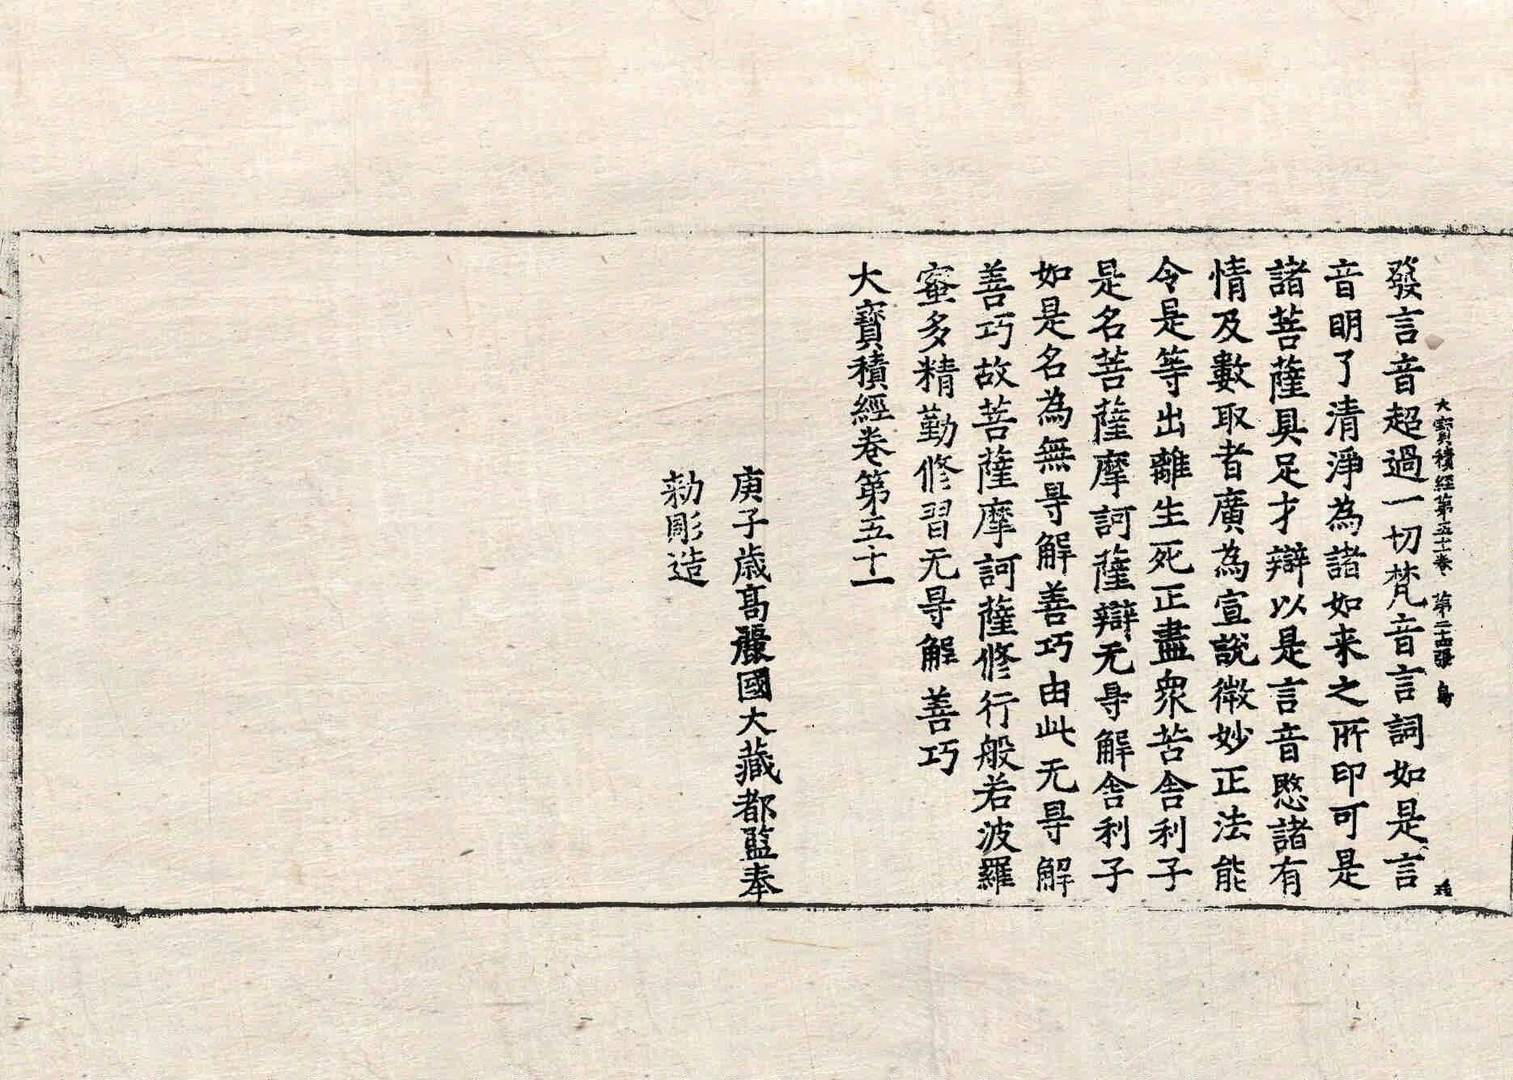 大寶積經第五十一卷 第二十四張 鳥
發言音超過一切梵音言詞如是言
音明了清淨為諸如来之所印可是
諸菩薩具足才辯以是言音愍諸有
情及數取者廣為宣說微妙正法能
令是等出離生死正盡衆苦舍利子
是名菩薩摩訶薩辯无㝵解舍利子
如是名為無㝵解善巧由此无㝵解
善巧故菩薩摩訶薩修行般若波羅
蜜多精勤修習无㝵解善巧
大寶積經卷第五十一
庚子歲高麗國大藏都監奉
勑彫造